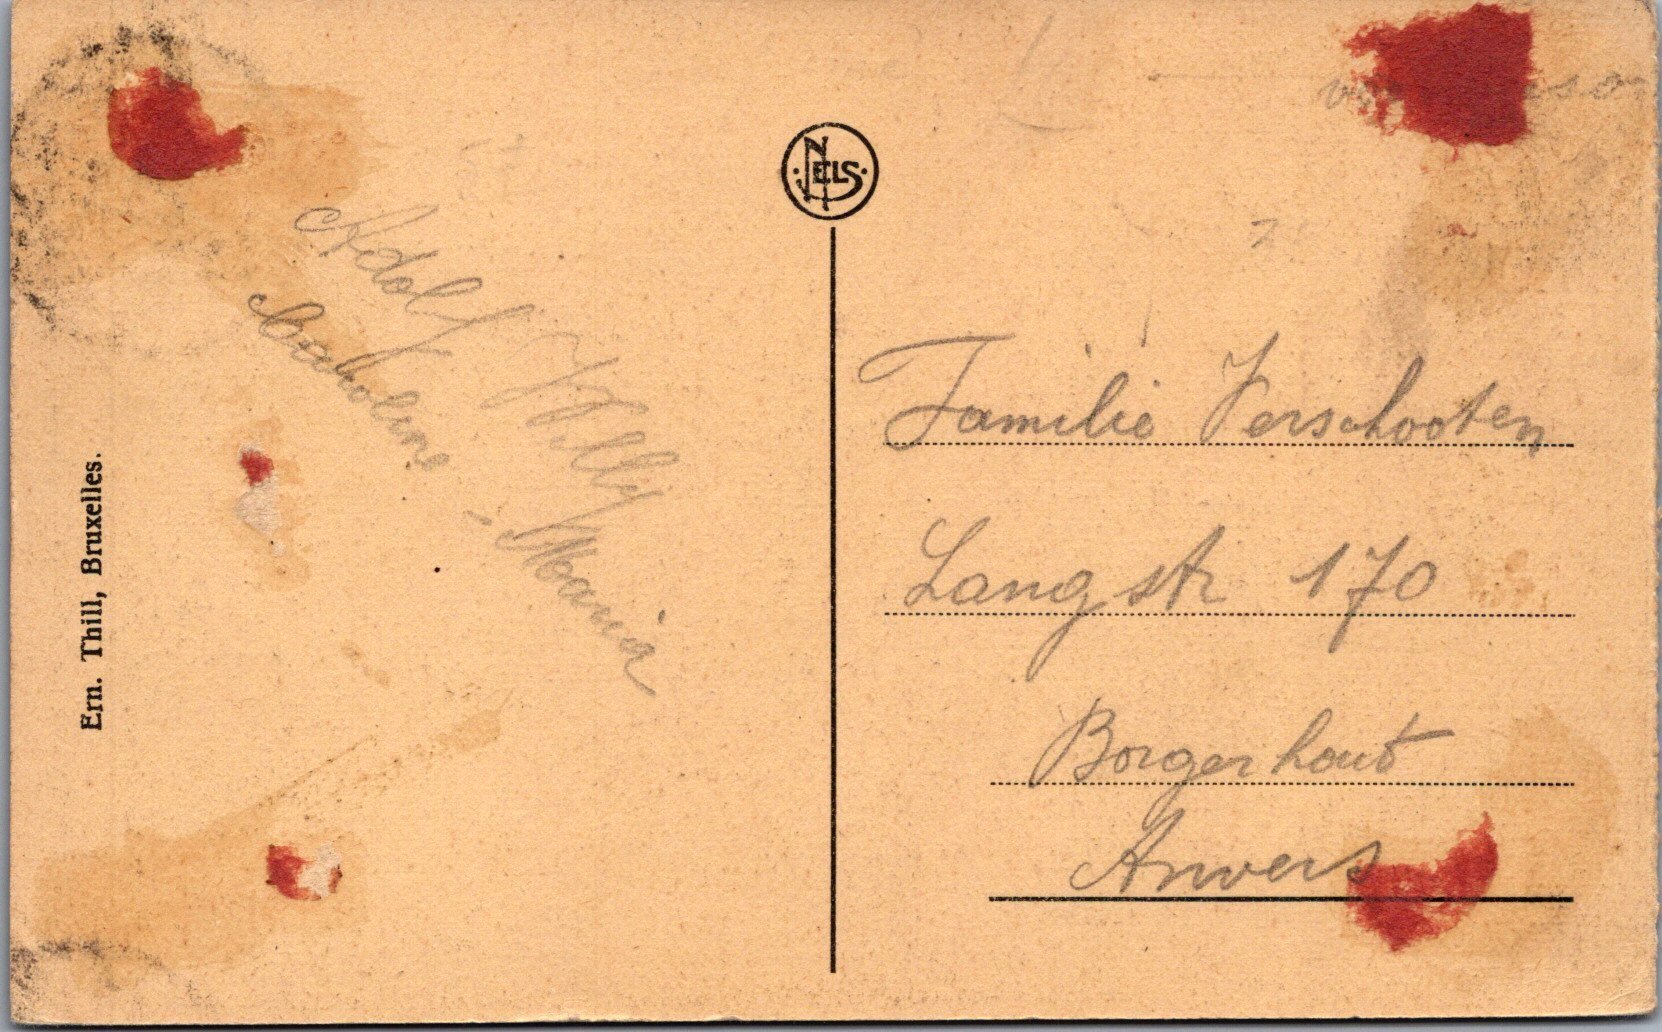 Ern. Thill, Bruxelles.
Adolf Willy
Caroline - Maria
NELS
Familie Verschooten
Langstr 170
Borgerhout
Anvers